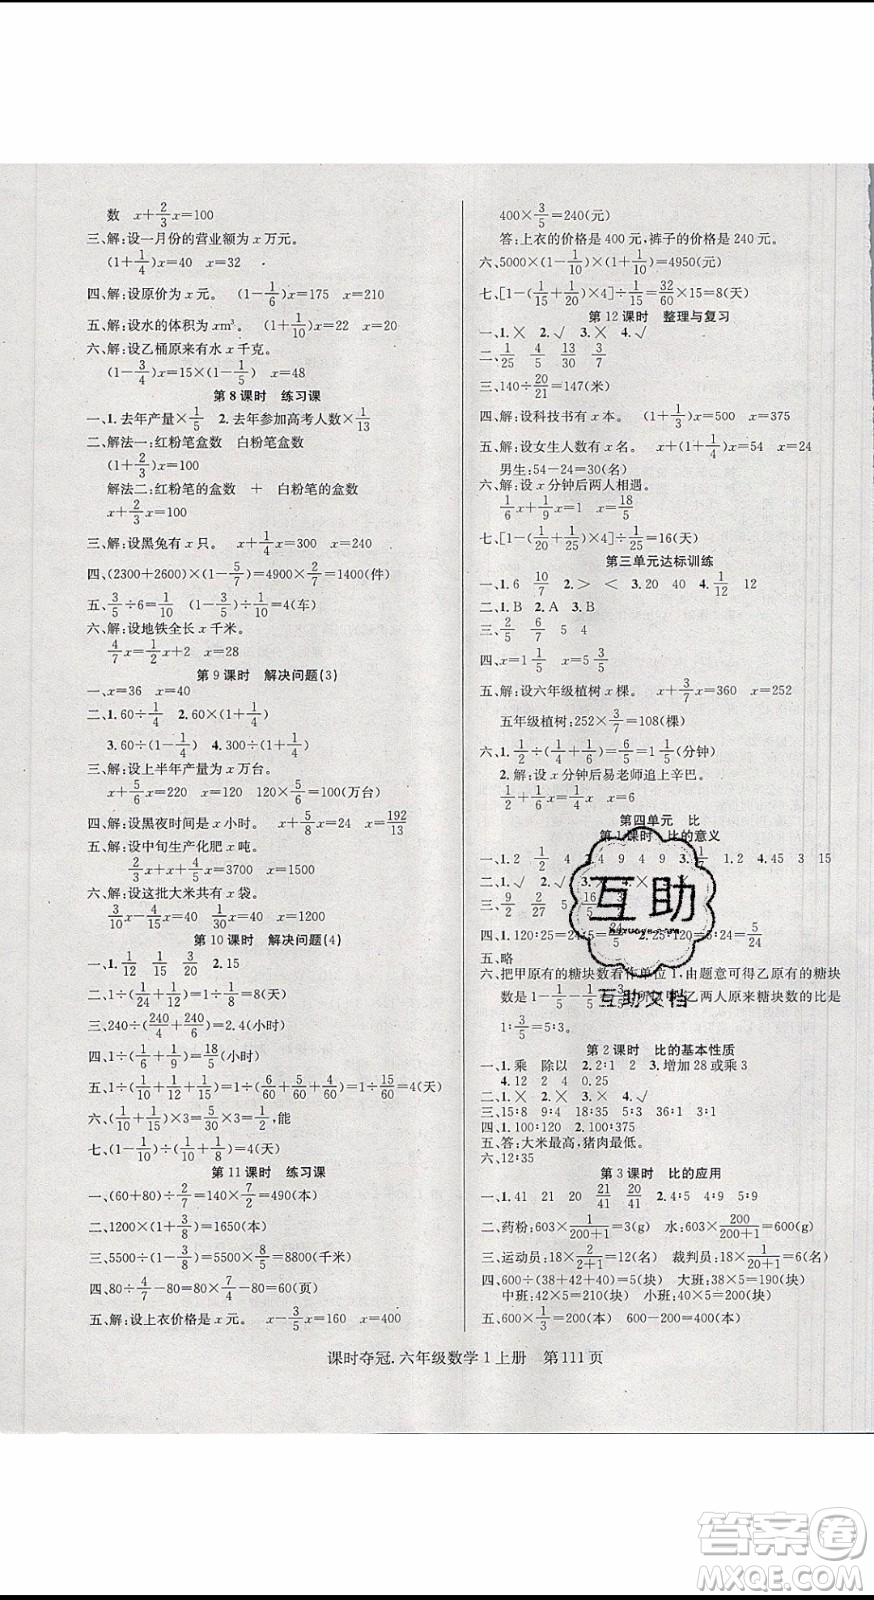 数 x+2/3x=100
三、解:设一月份的营业额为x万元。
(1+1/4)x=40 x=32
四、解:设原价为x元。 (1-1/6)x=175 x=210
五、解:设水的体积为xm³。 (1+1/10)x=22 x=20
六、解:设乙桶原来有水x千克。
(1-3/4)x=15×(1-1/5) x=48
第8课时 练习课
一、1.去年产量×1/5 2.去年参加高考人数×1/13
二、解法一:红粉笔盒数 白粉笔盒数
(1+2/3)x=100
解法二:红粉笔的盒数 + 白粉笔的盒数
x+2/3x=100
三、解:设黑兔有x只。 x+1/4x=300 x=240
四、(2300+2600)×(1-5/7)=4900×2/7=1400(件)
五、3/5÷6 (1-3/5)÷1/10=4(车)
六、解:设地铁全长x千米。
4/7x=1/2x+2 x=28
第9课时 解决问题(3)
一、x=36 x=40
二、1.60÷1/4 2.60×(1+1/4)
3.60÷(1-1/4) 4.300÷(1+1/4)
三、解:设上半年产量为x万台。
x+5/6x=220 x=120 120×5/6=100
四、解:设黑夜时间是x小时。 x+5/8x=24 x=192/13
五、解:设中旬生产化肥x吨。
2/3x+4/5x+x=3700 x=1500
六、解:设这批大米共有x袋。
3/10x-4/15x=40 1/30x=40 x=1200
第10课时 解决问题(4)
一、1.1/12 1/15 3/20 2.15
二、1÷(1/24+1/12)=1÷1/8=8(天)
三、240÷(240/4+240/6)=2.4(小时)
四、1÷(1/6+1/9)=18/5(小时)
五、1÷(1/10+1/12+1/15)=1÷(6/60+5/60+4/60)=1÷15/60=4(天)
六、(1/10+1/15)×3=5/30×3=1/2,能
七、(1-1/10)÷(1/10+1/8)=4(天)
第11课时 练习课
一、(60+80)÷2/7=140×7/2=490(本)
二、1200×(1+3/8)=1650(本)
三、5500÷(1-3/8)=5500×8/5=8800(千米)
四、80÷4/7-80=80×7/4-80=60(页)
五、解:设上衣价格是x元。 x-3/5x=160 x=400
400×3/5=240(元)
答:上衣的价格是400元,裤子的价格是240元。
六、5000×(1-1/10)×(1+1/10)=4950(元)
七、[1-(1/15+1/10)×4]÷1/15=32/60×15=8(天)
第12课时 整理与复习
一、1.× 2.√ 3.× 4.√
二、1/25 4/5 13/30 3/7
三、140÷20/21=147(米)
四、解:设科技书有x本。 (1+1/3)x=360 x=270
五、解:设女生人数有x名。 x+(1+1/4)x=54 x=24
男生:54-24=30(名)
六、解:设x分钟后两人相遇。
1/6x+1/9x=1 x=18/5
七、[1-(1/20+1/25)×4]÷1/25=16(天)
第三单元达标训练
一、1.6 10/7 2.> < 3.20 40 4.1/12 12
二、1.B 2.A 3.B
三、2/5 6/5 5 4
四、x=1 1/5 x=5 3/5
五、解:设六年级植树x棵。 x+3/7x=360 x=252
五年级植树:252×3/7=108(棵)
六、1.1/2÷(1/4+1/6)=6/5=1 1/5(分钟)
2.解:设x分钟后易老师追上辛巴。
1/2+1/6x=1/4x x=6
第四单元 比
第1课时 比的意义
一、1.2 1/2 4 4 9 4 9 3. 1.2 4.45 3 15
二、1.√ 2.√ 3.× 4.×
三、9/2 2/27 5 16/5
四、1.120:25=24:5= 2.25:120=5:24=5/24
五、略
六、把甲原有的糖块数看作单位1,由题意可得乙原有的糖块
数是1-1/5-1/5=3/5,所以甲乙两人原来糖块数的比是
1:3/5=5:3。
第2课时 比的基本性质
一、1.乘 除以 2.2:1 2 3.增加28或乘3
4.12 2 4 0.25
二、1.× 2.× 3.× 4.√
三、15:8 9:4 18:35 5:3 36:1 3:1
四、1.100:120 2.100:375
五、答:大米最高,猪肉最低。
六、12:35
第3课时 比的应用
一、1.41 21 20 21/41 20/41 2.4:5 4:9 5:9
二、药粉:603×1/(200+1)=3(g) 水:603×200/(200+1)=600(g)
三、运动员:18×2/(2+1)=12(名) 裁判员:18×1/(20+1)=6(名)
四、600÷(38+42+40)=5(块) 大班:38×5=190(块)
中班:42×5=210(块) 小班:40×5=200(块)
五、600×1/3=200(本) 600-200=400(本)
课时夺冠.六年级数学1上册 第111页
互助
互助文档
答案卷
MXQE.COM